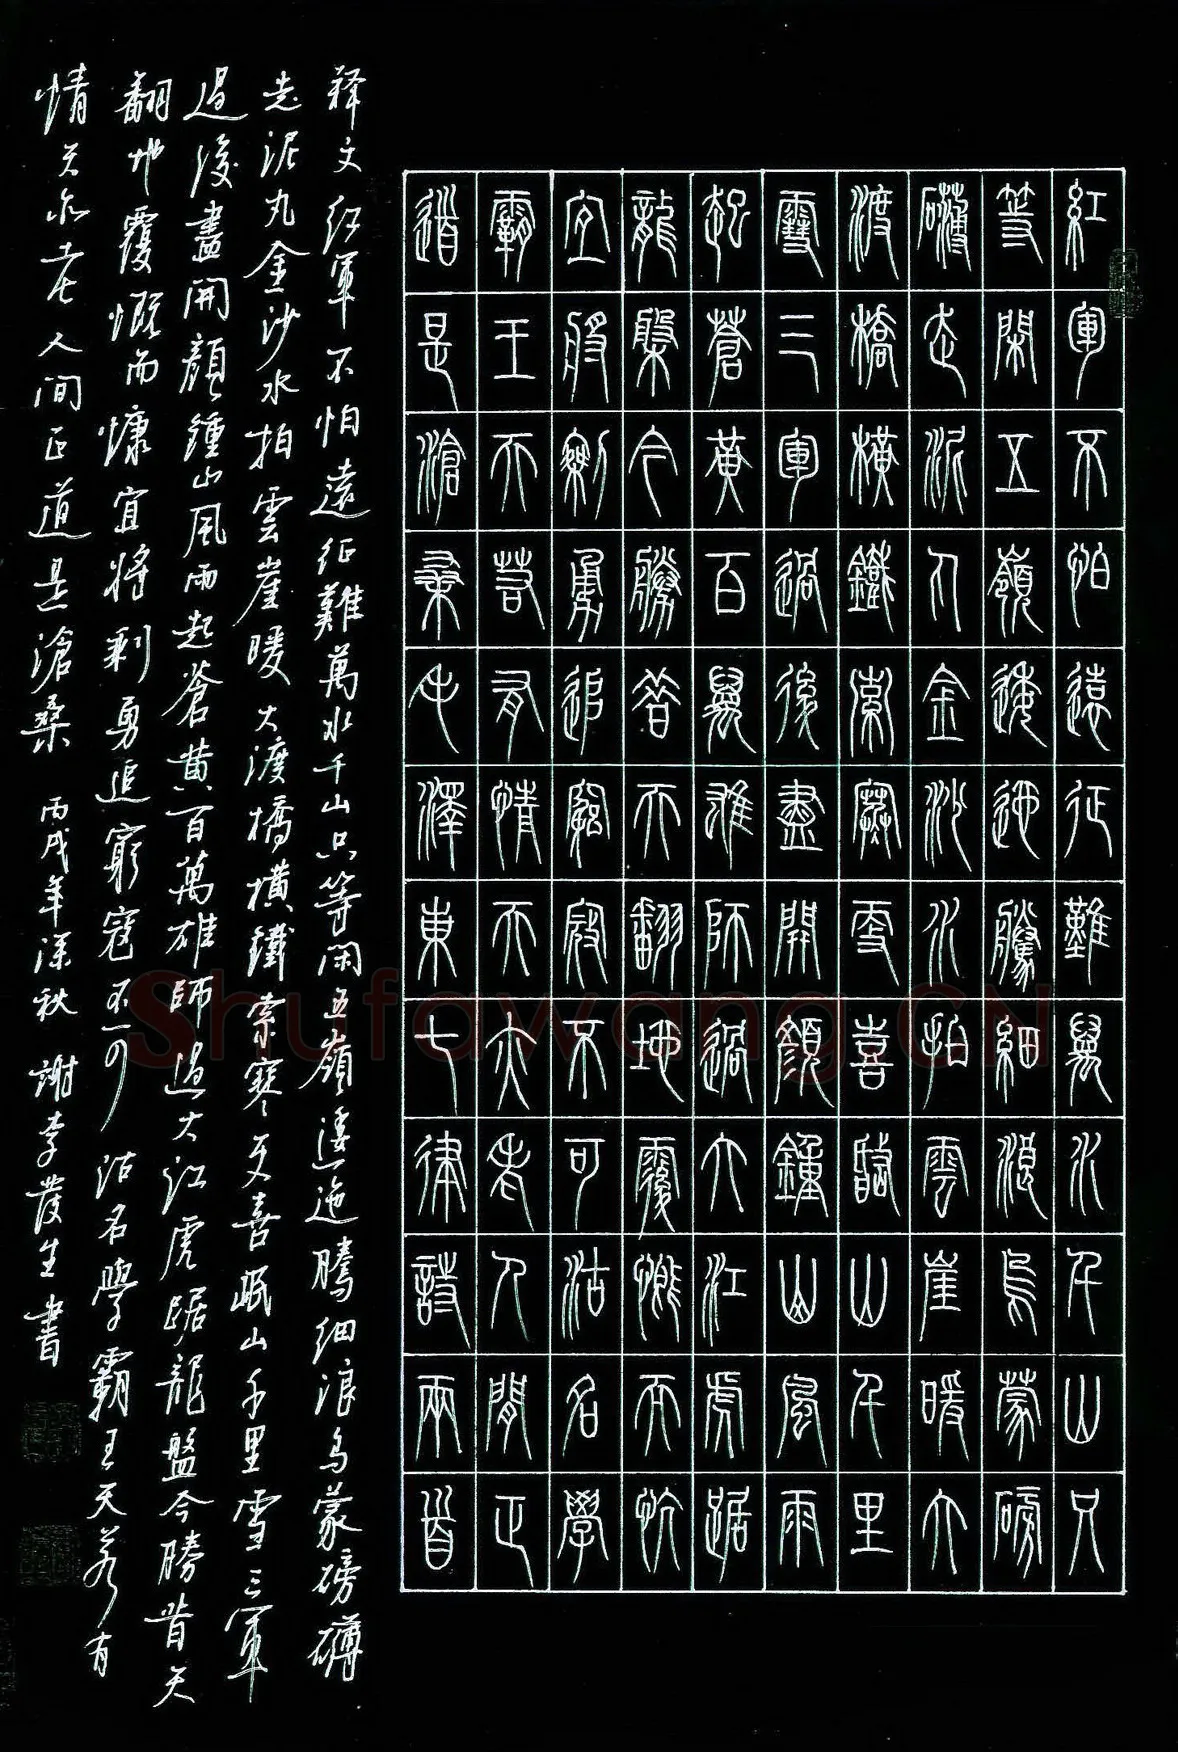 紅軍不怕遠征難萬水千山只
等閑五嶺逶迤騰細浪烏蒙磅
礴走泥丸金沙水拍雲崖暖大
渡橋橫鐵索寒更喜岷山千里
雪三軍過後盡開顏鐘山風雨
起蒼黃百萬雄師過大江虎踞
龍盤今勝昔天翻地覆慨而慷
宜將剩勇追窮寇不可沽名學
霸王天若有情天亦老人間正
道是滄桑毛澤東七律詩兩首
释文红軍不怕遠征難萬水千山只等闲五嶺逶迤騰细浪乌蒙磅礴
走泥丸金沙水拍雲崖暖大渡橋横鐵索寒更喜岷山千里雪三軍
過後盡開顔鍾山風雨起蒼黄百萬雄師過大江虎踞龍盤今勝昔天
翻地覆慨而慷宜将剩勇追窮寇不可沽名學霸王天若有
情天亦老人间正道是滄桑 丙戌年深秋 謝李發生書
Shufawang.CN